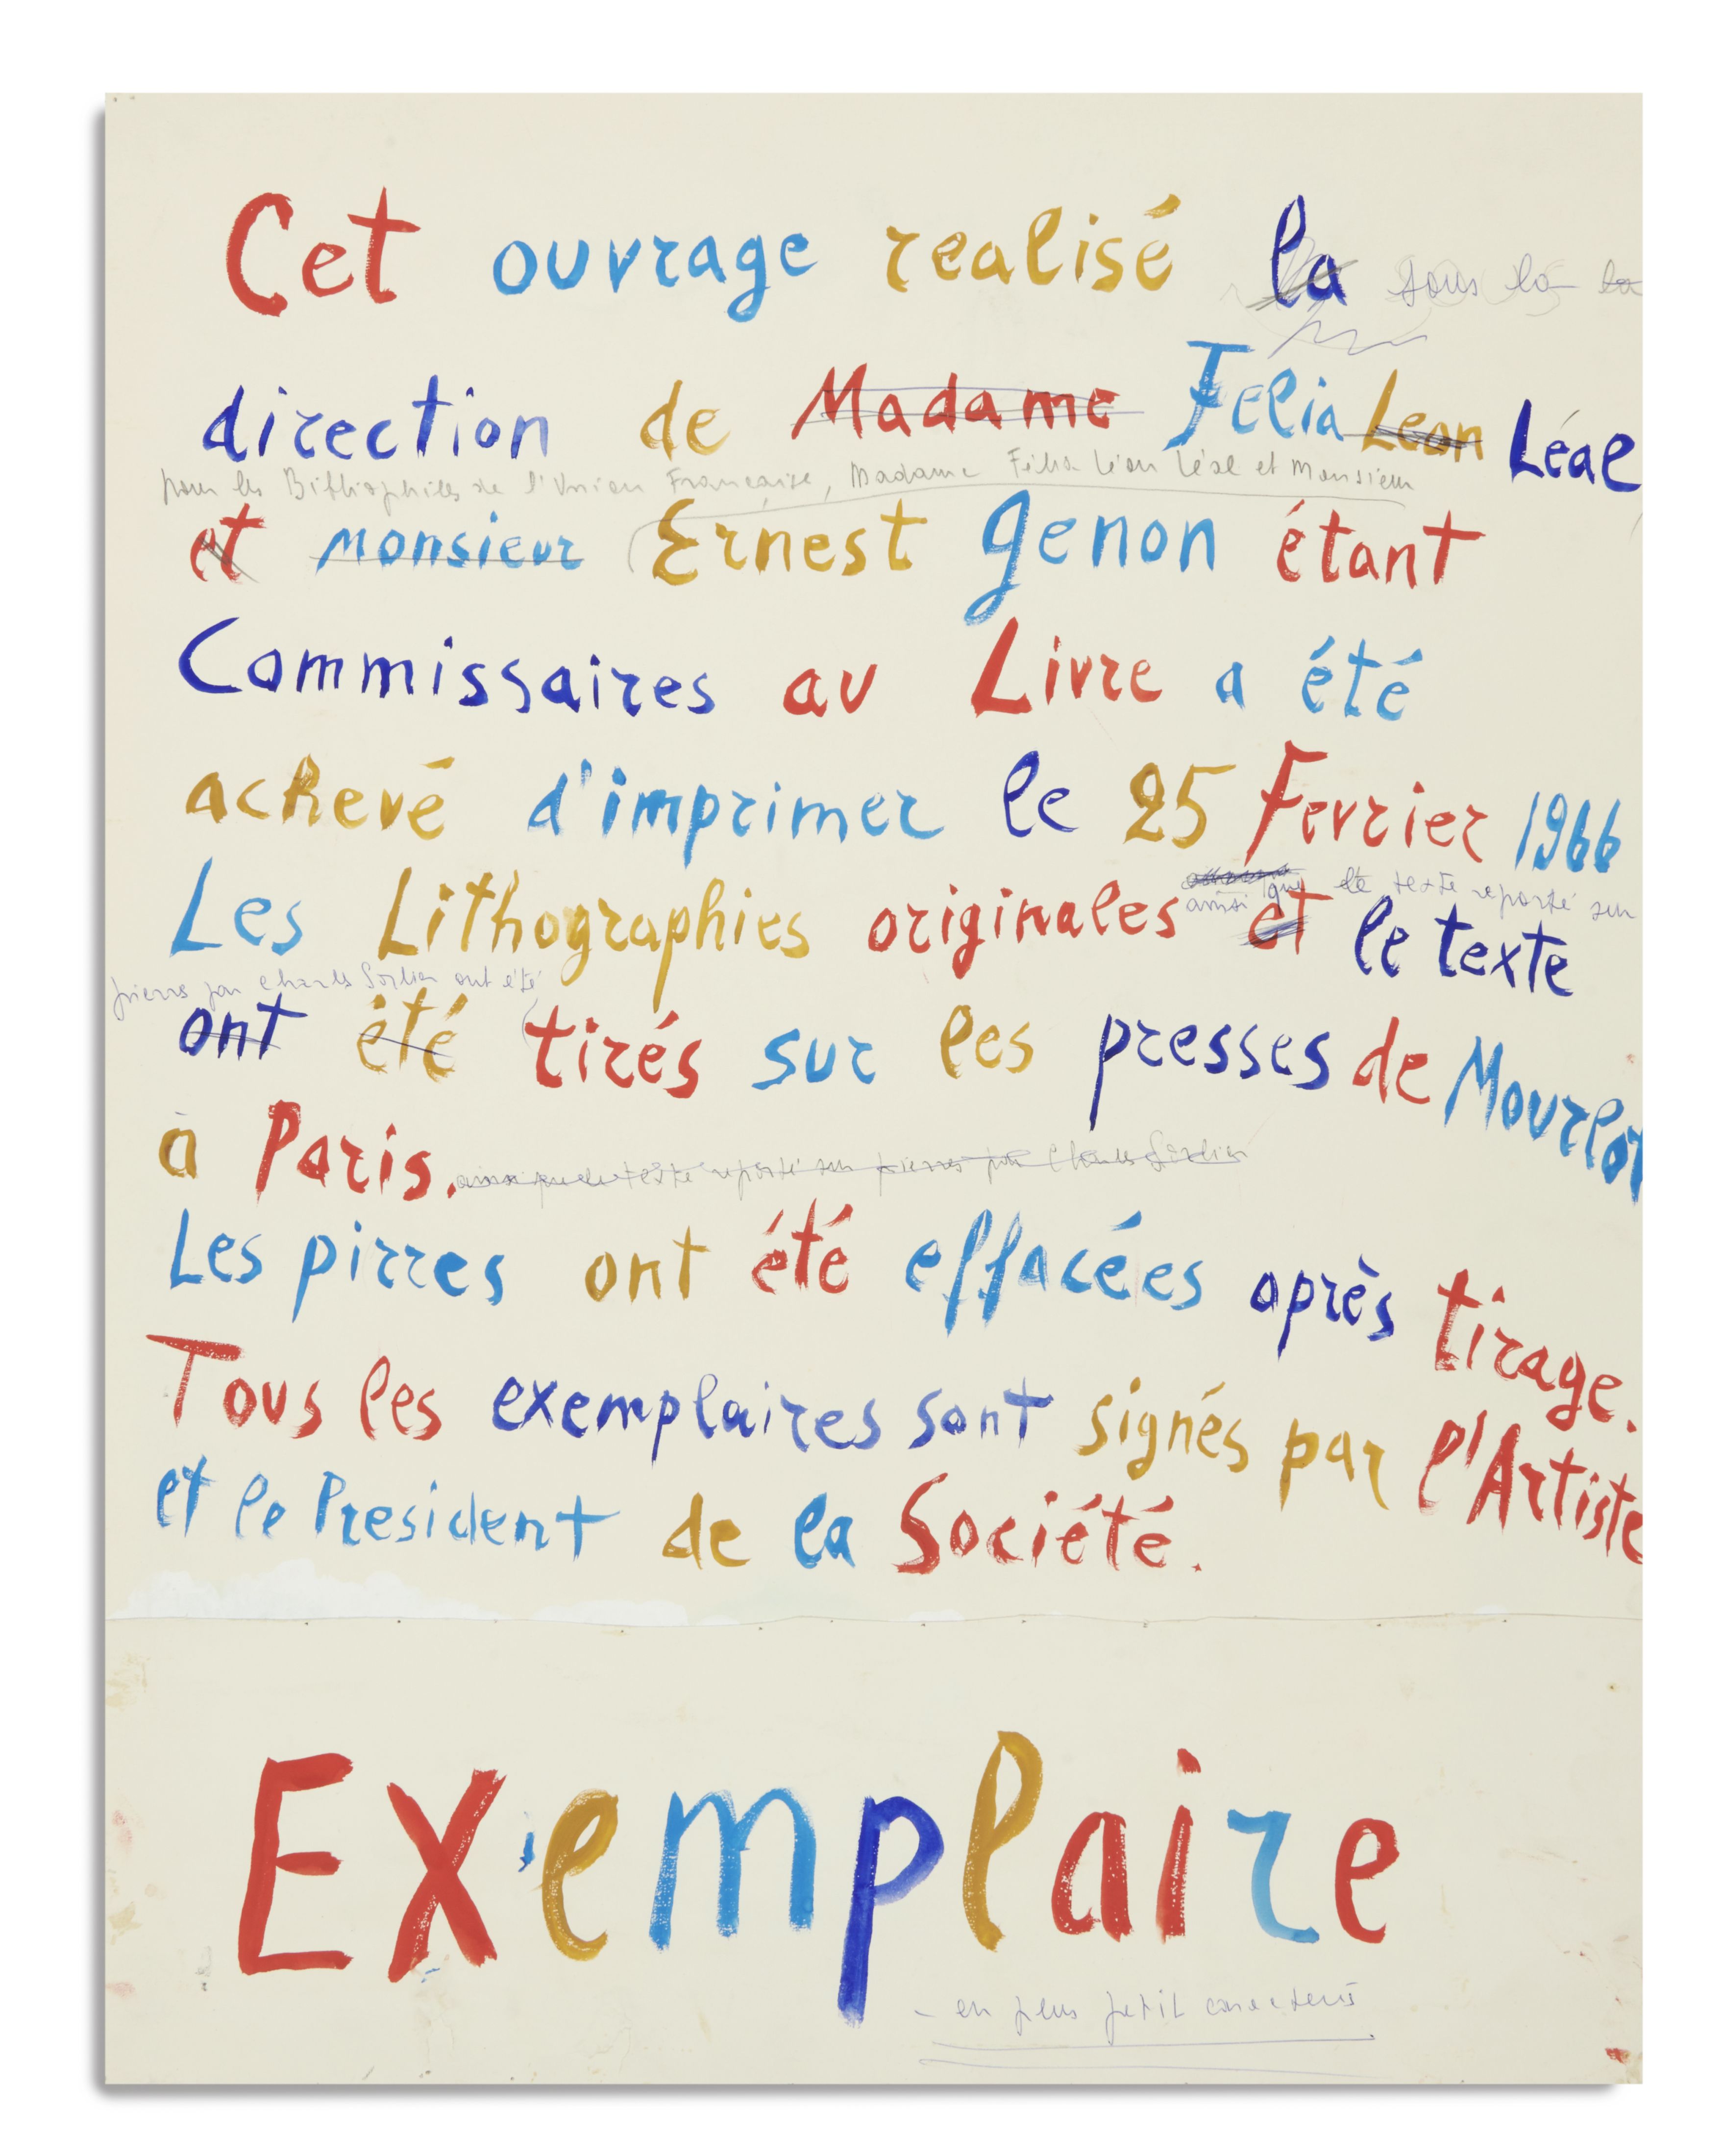 Cet ouvrage realisé la sous la la
direction de Madame Felia Leon Léal
pour les Bibliophiles de l'Union Française, Madame Félia Léon Léal et Monsieur
et monsieur Ernest genon étant
Commissaires au Livre a été
achevé d'imprimer le 25 Fevrier 1966
ainsi que le texte reporté sur
Les Lithographies originales et le texte
pierre par Charles Sorlier ont été
ont été tirés sur les presses de Mourlot
à Paris. ainsi que le texte reporté sur pierres par Charles Sorlier
Les pirres ont été effacées après tirage.
Tous les exemplaires sont signés par l'Artiste
et le President de la Société.
Exemplaire
- en plus petit caracteres